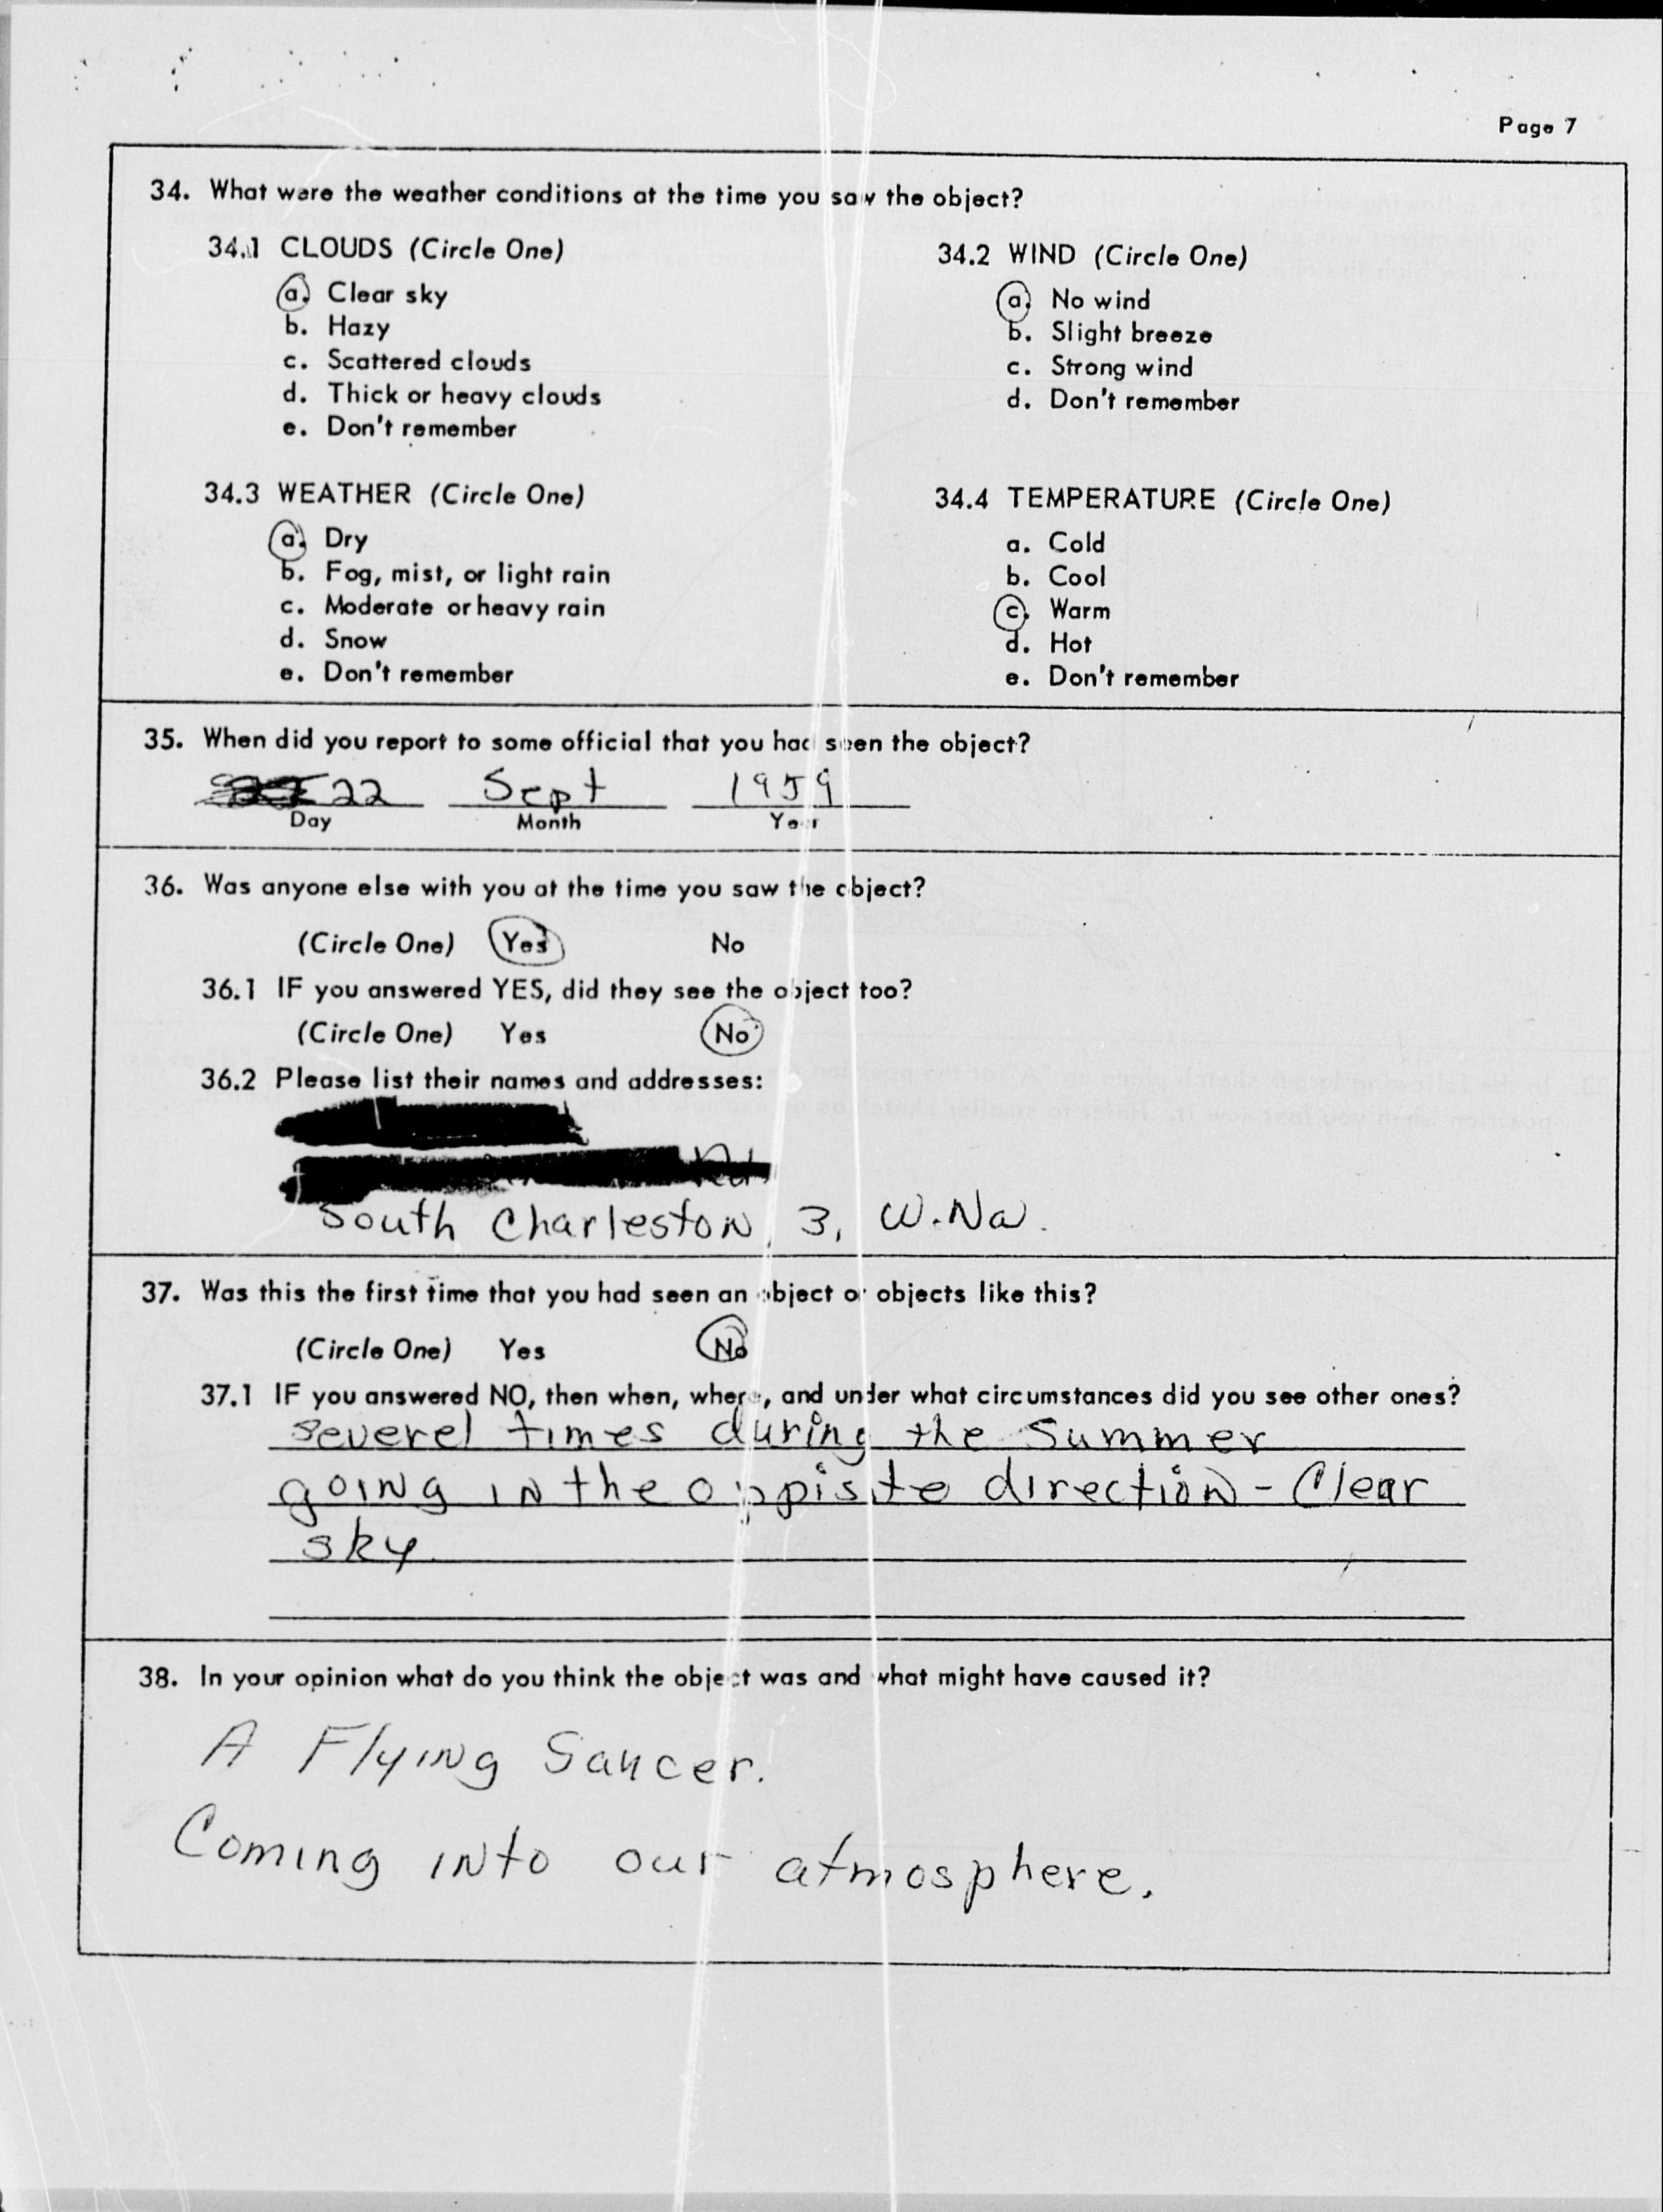 Page 7
34. What were the weather conditions at the time you saw the object?
34.1 CLOUDS (Circle One)
a. Clear sky
b. Hazy
c. Scattered clouds
d. Thick or heavy clouds
e. Don't remember
34.2 WIND (Circle One)
a. No wind
b. Slight breeze
c. Strong wind
d. Don't remember
34.3 WEATHER (Circle One)
a. Dry
b. Fog, mist, or light rain
c. Moderate or heavy rain
d. Snow
e. Don't remember
34.4 TEMPERATURE (Circle One)
a. Cold
b. Cool
c. Warm
d. Hot
e. Don't remember
35. When did you report to some official that you had seen the object?
22 Sept 1959
Day Month Year
36. Was anyone else with you at the time you saw the object?
(Circle One) Yes No
36.1 IF you answered YES, did they see the object too?
(Circle One) Yes No
36.2 Please list their names and addresses:
South Charleston, 3, W.Va.
37. Was this the first time that you had seen an object or objects like this?
(Circle One) Yes No
37.1 IF you answered NO, then when, where, and under what circumstances did you see other ones?
severel times during the summer
going in the oppisite direction - Clear
sky
38. In your opinion what do you think the object was and what might have caused it?
A Flying Saucer.
Coming into our atmosphere.